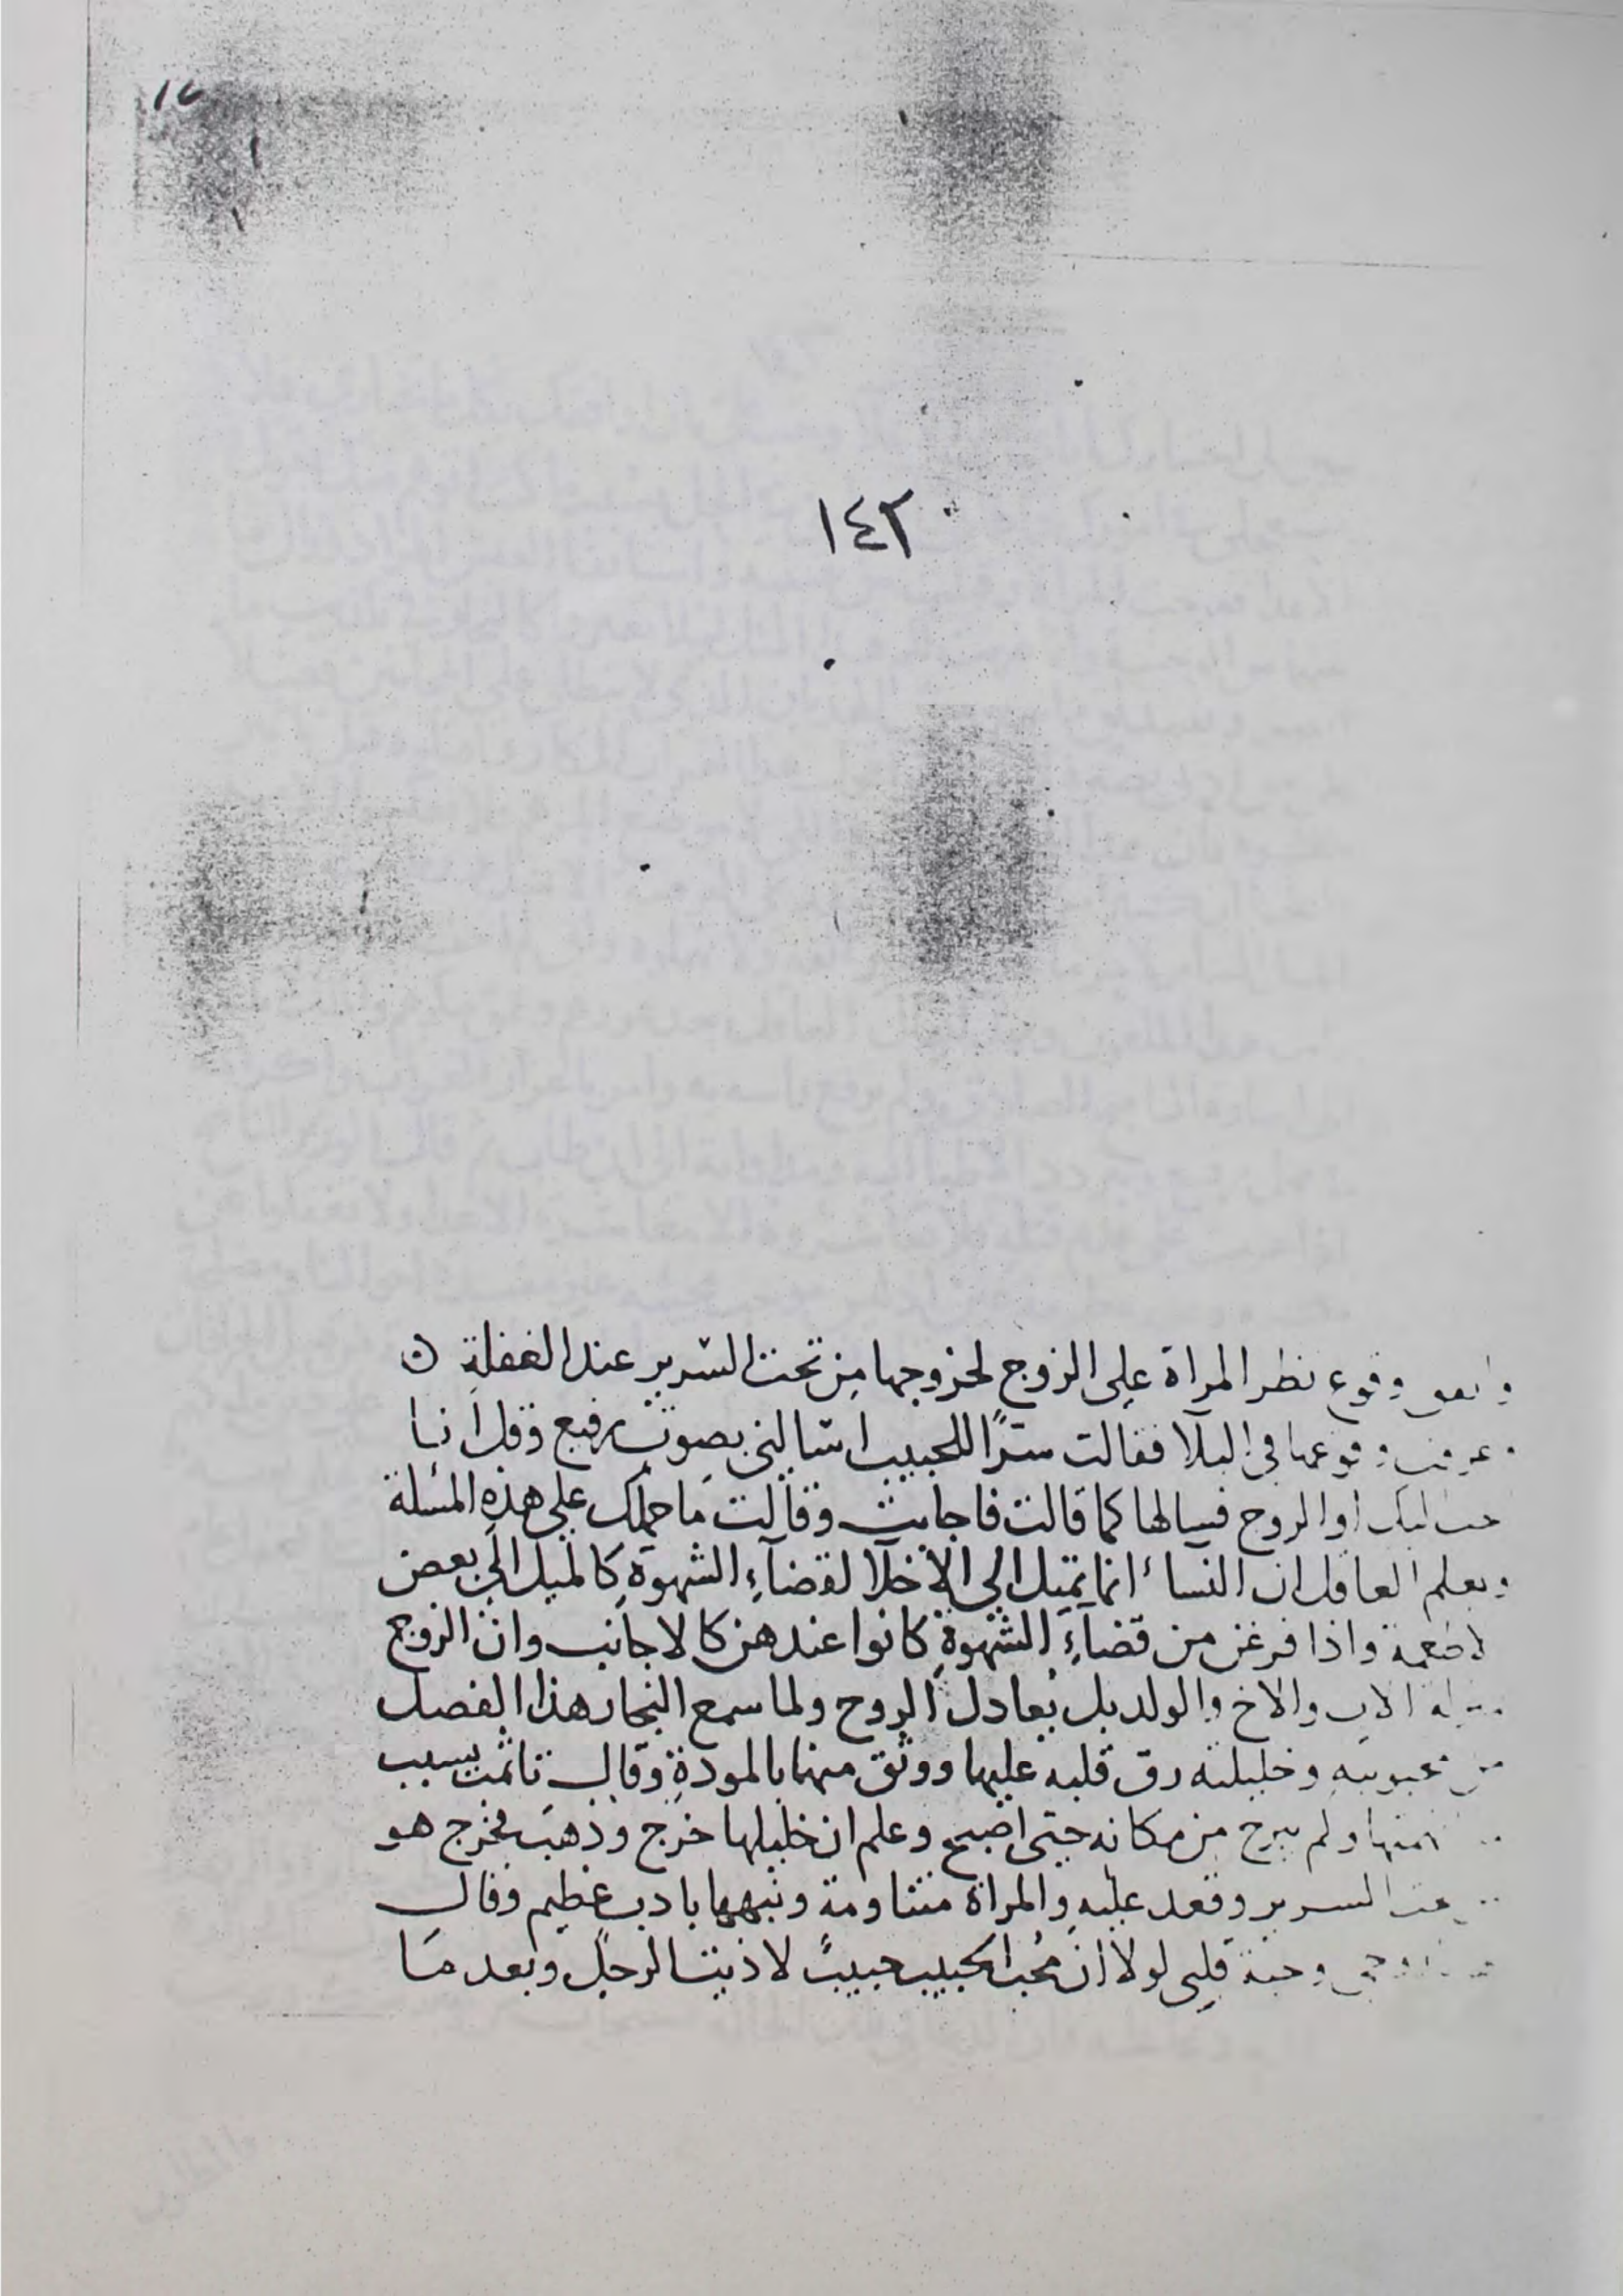 ١٤٢
واتفق وقوع نظر المراة على الزوج لخروجها من تحت السّرير عند الغفلة ن
وعرفت وقوعها في البلآ فقالت سرًّا للحبيب اسالني بصوت رفيع وقل انا
احب اليك او الزوج فسالها كما قالت فاجابت وقالت مَا حملك على هذه المسئلة
ويعلم العاقل ان النساء انما تميل الي الاخلّا لقضآءِ الشهوة كالميل الي بعض
الاطعمة واذا فرغن من قضآءِ الشهوةِ كانوا عندهن كالاجانب وان الزوج
بمنزلة الاب والاخ والولد بل يُعادل الروح ولما سمع النجار هذا الفصل
من محبوبته وخليلته رق قلبه عليها ووثق منها بالمودةِ وقال تاثمت بسبب
ولم يبرح من مكانه حتى اصبح وعلم ان خليلها خرج وذهبَ فخرج هو
السرير وقعد عليه والمراة متناومة ونبهها بادب عظيم وقال
وحبة قلبي لولا ان مُحب الحبيب حبيبٌ لاذيت الرجل وبعد مَا